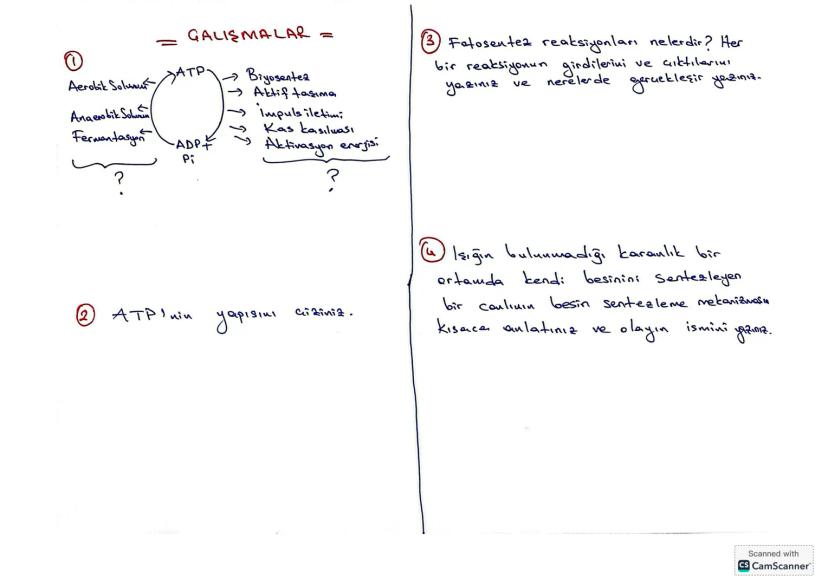 = ÇALIŞMALAR =
①
ATP
Aerobik Solunum
Anaerobik Solunum
Fermantasyon
ADP +
Pi
→ Biyosentez
→ Aktif taşıma
→ İmpuls iletimi
→ Kas kasılması
→ Aktivasyon enerjisi
?
?
② ATP'nin yapısını çiziniz.
③ Fotosentez reaksiyonları nelerdir? Her
bir reaksiyonun girdilerini ve çıktılarını
yazınız ve nerelerde gerçekleşir yazınız.
④ Işığın bulunmadığı karanlık bir
ortamda kendi besinini sentezleyen
bir canlının besin sentezleme mekanizmasını
kısaca anlatınız ve olayın ismini yazınız.
Scanned with
CS CamScanner